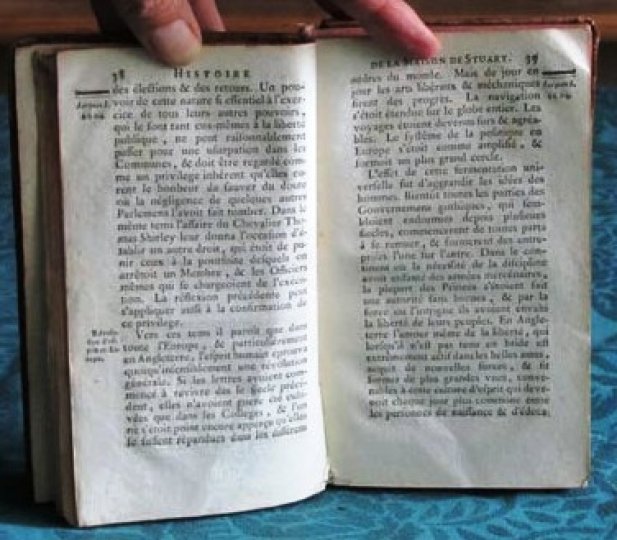 38 HISTOIRE
des élections & des retours. Un pou-
Jacques I.
voir de cette nature si essentiel à l'exer-
cice de tous leurs autres pouvoirs,
qui le font tant eux-mêmes à la liberté
publique, ne peut raisonnablement
passer pour une usurpation dans les
Communes, & doit être regardé com-
me un privilege inhérent qu'elles eu-
rent le bonheur de sauver du doute
où la négligence de quelques autres
Parlemens l'avoit fait tomber. Dans le
même tems l'affaire du Chevalier Tho-
mas Shirley leur donna l'occasion d'é-
tablir un autre droit, qui étoit de pu-
nir ceux à la poursuite desquels on
arrêtoit un Membre, & les Officiers
mêmes qui se chargeoient de l'execu-
tion. La réflexion précédente peut
s'appliquer aussi à la confirmation de
ce privilege.
Vers ces tems il paroît que dans
toute l'Europe, & particuliérement
en Angleterre, l'esprit humain éprouva
quoiqu'insensiblement une révolution
générale. Si les lettres avoient com-
mencé à revivre dès le siecle précé-
dent, elles n'avoient guere été culti-
vées que dans les Colleges, & l'on
ne s'étoit point encore apperçu qu'elles
se fussent répandues dans les différens
DE LA MAISON DE STUART. 39
ordres du monde. Mais de jour en
jour les arts libéraux & méchaniques
Jacques I.
firent des progrès. La navigation
s'étoit étendue sur le globe entier. Les
voyages étoient devenus sûrs & agréa-
bles. Le systême de la politique en
Europe s'étoit comme amplifié, &
formoit un plus grand cercle.
L'effet de cette fermentation uni-
verselle fut d'aggrandir les idées des
hommes. Bientôt toutes les parties des
Gouvernemens gothiques, qui sem-
bloient endormies depuis plusieurs
siecles, commencerent de toutes parts
à se remuer, & formerent des entre-
prises l'une sur l'autre. Dans le con-
tinent où la nécessité de la discipline
avoit enfanté des armées mercénaires,
la plupart des Princes s'étoient fait
une autorité sans bornes, & par la
force ou l'intrigue ils avoient envahi
la liberté de leurs peuples. En Angle-
terre l'amour même de la liberté, qui
lorsqu'il n'est pas tenu en bride est
extrêmement actif dans les belles ames,
acquit de nouvelles forces, & se
forma de plus grandes vues, conve-
nables à cette encore d'esprit qui deve-
noit chaque jour plus commune entre
les personnes de naissance & d'éduca-